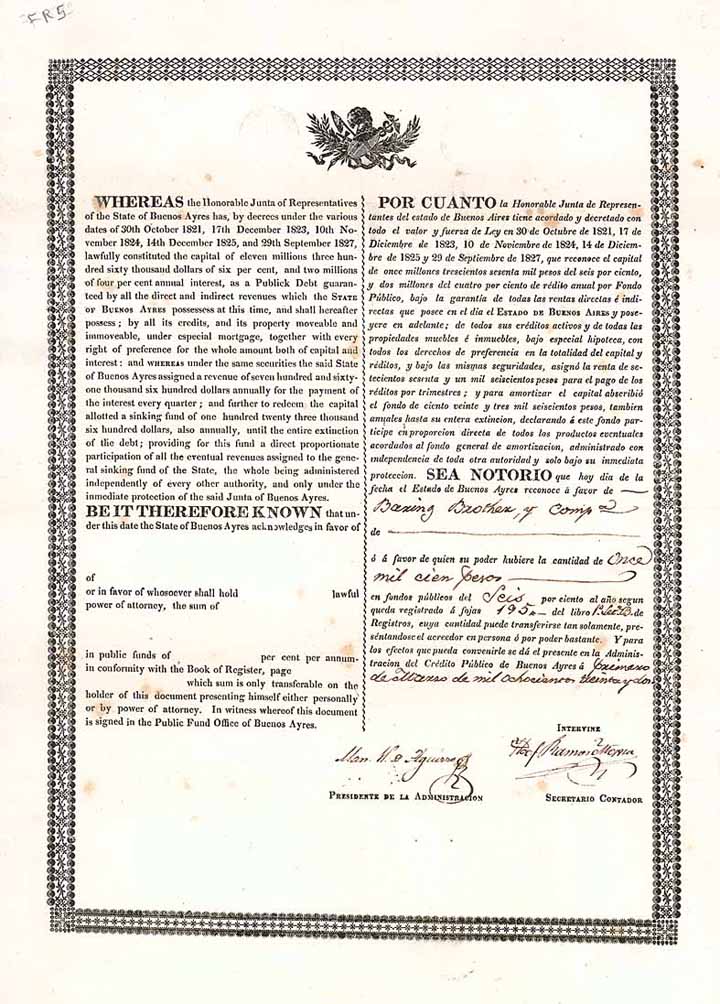 FR5
WHEREAS the Honorable Junta of Representatives
of the State of Buenos Ayres has, by decrees under the various
dates of 30th October 1821, 17th December 1823, 10th No-
vember 1824, 14th December 1825, and 29th September 1827,
lawfully constituted the capital of eleven millions three hun-
dred sixty thousand dollars of six per cent, and two millions
of four per cent annual interest, as a Publick Debt guaran-
teed by all the direct and indirect revenues which the STATE
OF BUENOS AYRES possessess at this time, and shall hereafter
possess; by all its credits, and its property moveable and
immoveable, under especial mortgage, together with every
right of preference for the whole amount both of capital and
interest; and WHEREAS under the same securities the said State
of Buenos Ayres assigned a revenue of seven hundred and sixty-
one thousand six hundred dollars annually for the payment of
the interest every quarter; and further to redeem the capital
allotted a sinking fund of one hundred twenty three thousand
six hundred dollars, also annually, until the entire extinction
of the debt; providing for this fund a direct proportionate
participation of all the eventual revenues assigned to the gene-
ral sinking fund of the State, the whole being administered
independently of every other authority, and only under the
inmediate protection of the said Junta of Buenos Ayres.
BE IT THEREFORE KNOWN that un-
der this date the State of Buenos Ayres acknowledges in favor of
of
or in favor of whosoever shall hold lawful
power of attorney, the sum of
in public funds of per cent per annum-
in conformity with the Book of Register, page
which sum is only transferable on the
holder of this document presenting himself either personally
or by power of attorney. In witness whereof this document
is signed in the Public Fund Office of Buenos Ayres.
POR CUANTO la Honorable Junta de Represen-
tantes del estado de Buenos Aires tiene acordado y decretado con
todo el valor y fuerza de Ley en 30 de Octubre de 1821, 17 de
Diciembre de 1823, 10 de Noviembre de 1824, 14 de Diciem-
bre de 1825 y 29 de Septiembre de 1827, que reconoce el capital
de once millones trescientos sesenta mil pesos del seis por ciento,
y dos millones del cuatro por ciento de rédito anual por Fondo
Público, bajo la garantía de todas las rentas directas é indi-
rectas que posee en el día el ESTADO DE BUENOS AIRES y pose-
yere en adelante; de todos sus créditos activos y de todas las
propiedades muebles é inmuebles, bajo especial hipoteca, con
todos los derechos de preferencia en la totalidad del capital y
réditos, y bajo las mismas seguridades, asignó la renta de se-
tecientos sesenta y un mil seiscientos pesos para el pago de los
réditos por trimestres; y para amortizar el capital abscribió
el fondo de ciento veinte y tres mil seiscientos pesos, tambien
anuales hasta su entera extincion, declarando á este fondo par-
ticipe en proporcion directa de todos los productos eventuales
acordados al fondo general de amortizacion, administrado con
independencia de toda otra autoridad y solo bajo su inmediata
proteccion. SEA NOTORIO que hoy dia de la
fecha el Estado de Buenos Ayres reconoce á favor de
Baring Brother, y Compa
de
ó á favor de quien su poder hubiere la cantidad de Once
mil cien pesos
en fondos públicos del Seis por ciento al año segun
queda registrado á fojas 195 del libro de
Registros, cuya cantidad puede transferirse tan solamente, pre-
séntandose el acreedor en persona ó por poder bastante. Y para
los efectos que pueda convenirle se dá el presente en la Adminis-
tracion del Crédito Público de Buenos Ayres á primero
de Marzo de mil ochocientos treinta y dos
INTERVINE
Man. H. de Aguirre
PRESIDENTE DE LA ADMINISTRACION
SECRETARIO CONTADOR